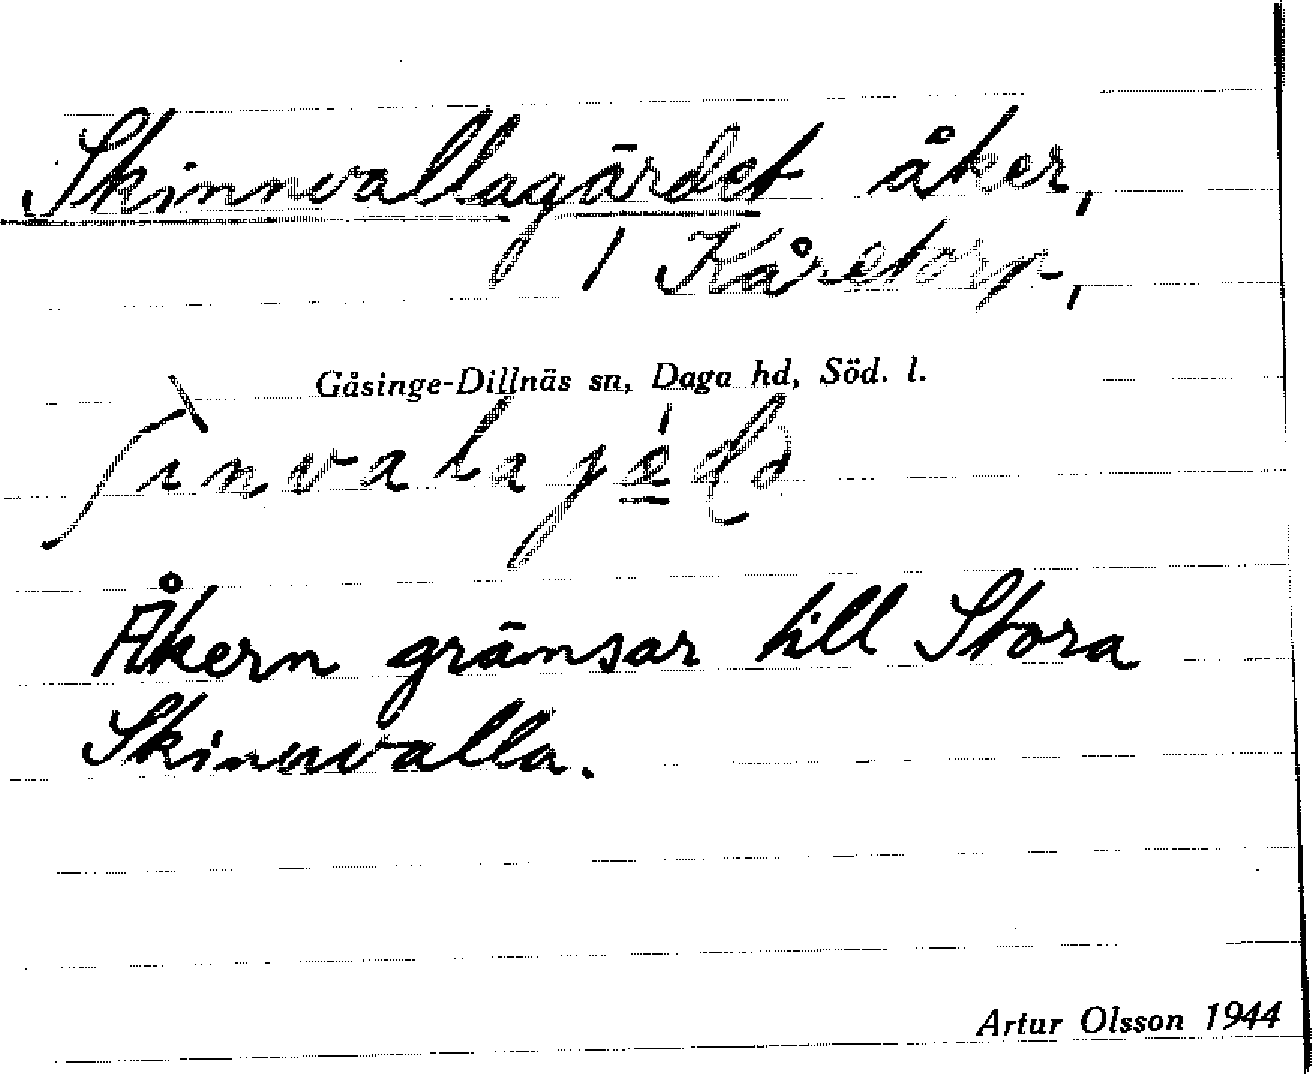 Skinnvallagärdet åker,
/ Kåretorp,
Gåsinge-Dillnäs sn, Daga hd, Söd. l.
Åkern gränsar till Stora
Skinnvalla.
Artur Olsson 1944